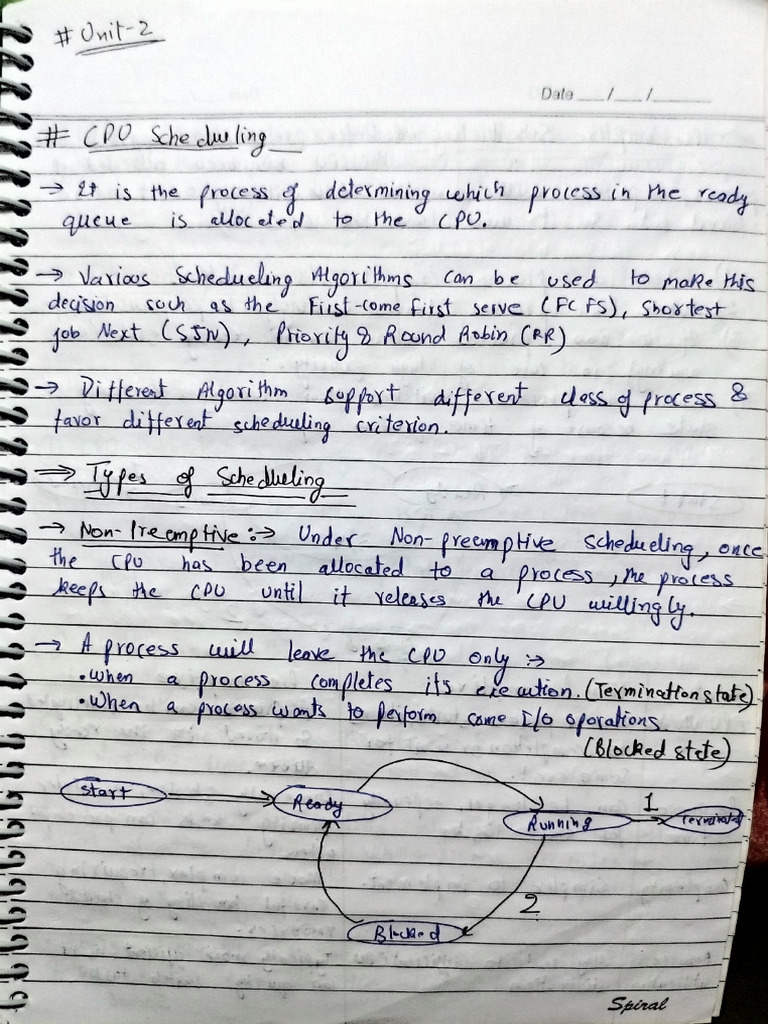 # Unit-2
Date __/__/____
# CPU Schedueling
→ It is the process of determining which process in the ready
queue is allocated to the CPU.
→ Various Schedueling Algorithms can be used to make this
decision such as the First-come First serve (FCFS), Shortest
job Next (SJN), Priority & Round Robin (RR)
→ Different Algorithm support different class of process &
favor different schedueling criterion.
⇒ Types of Schedueling
→ Non-Preemptive :→ Under Non-preemptive schedueling, once
the CPU has been allocated to a process, the process
keeps the CPU until it releases the CPU willingly.
→ A process will leave the CPU only :→
• When a process completes its execution. (Termination state)
• When a process wants to perform some I/O operations.
(Blocked state)
Start
Ready
Running
1
Terminated
2
Blocked
Spiral